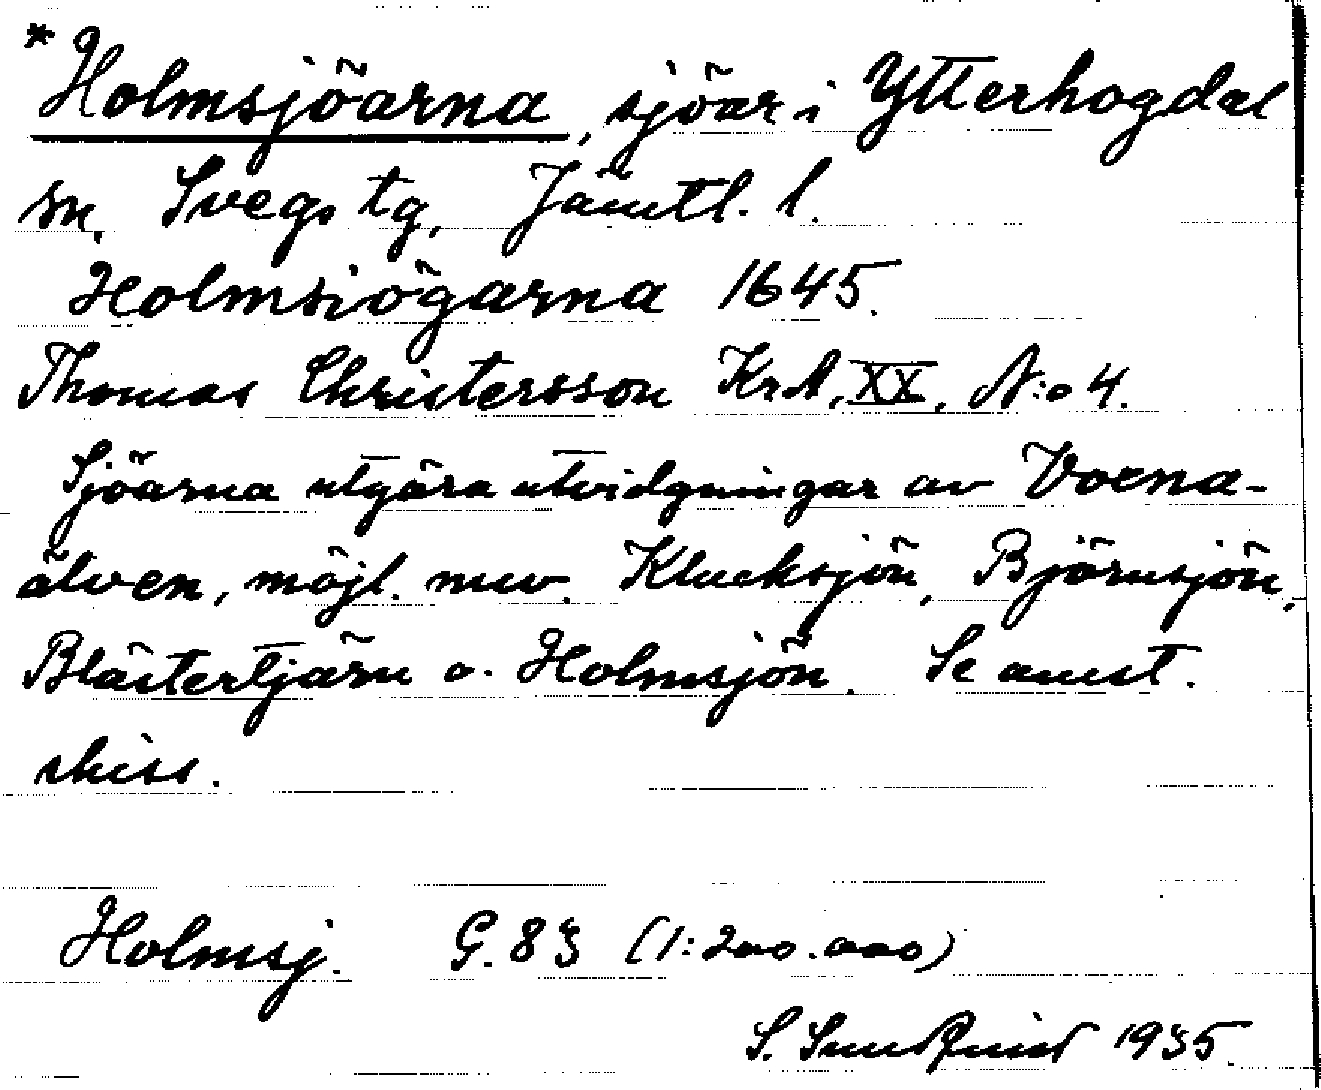 *Holmsjöarna, sjöar i Ytterhogdal
sn, Svegs tg, Jämtl. l.
Holmsiögarna 1645.
Thomas Christersson KrA, XX, N:o 4.
Sjöarna utgöra utvidgningar av Voxna-
älven, möjl. nuv. Klucksjön, Björnsjön,
Blästertjärn o. Holmsjön. Se anst.
skiss.
Holmsj. G. 83 (1:200.000)
S. Sundquist 1935.